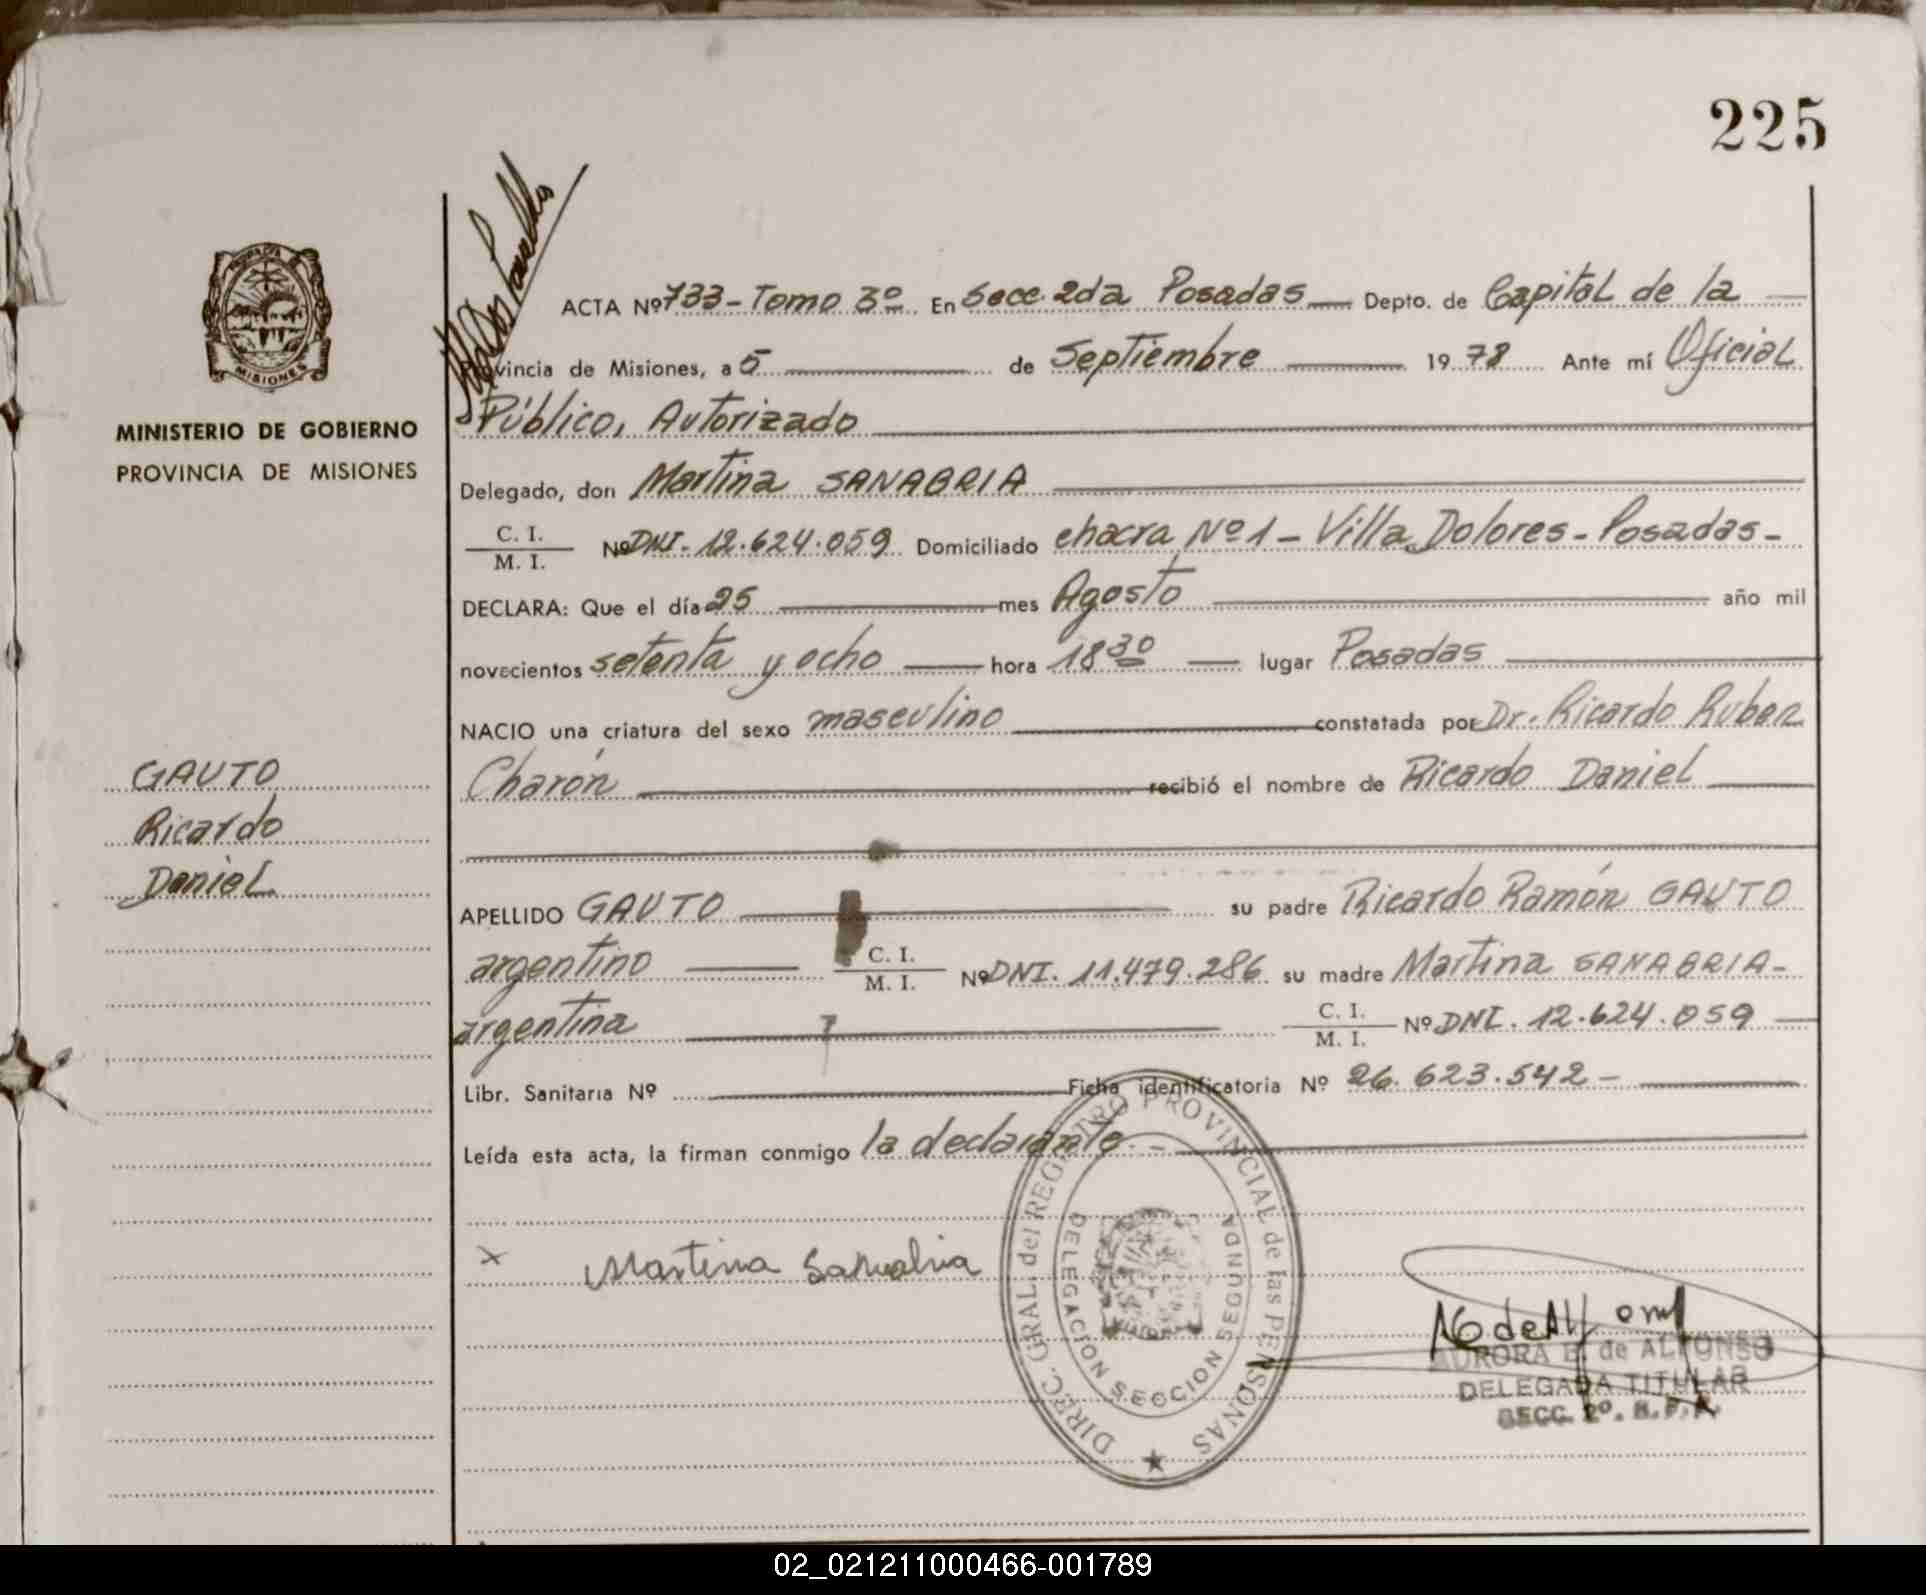 225
MINISTERIO DE GOBIERNO
PROVINCIA DE MISIONES
MISIONES
GAUTO
Ricardo
Daniel
ACTA Nº 733 - Tomo 3º En Secc. 2da Posadas — Depto. de Capital de la —
Provincia de Misiones, a 5 — de Septiembre — 19 78 Ante mí Oficial
Público, Autorizado —
Delegado, don Martina SANABRIA —
C. I.
M. I.
Nº DNI. 12.624.059 Domiciliado chacra Nº 1 - Villa Dolores - Posadas -
DECLARA: Que el día 25 — mes Agosto — año mil
novecientos setenta y ocho — hora 18 30 — lugar Posadas —
NACIO una criatura del sexo masculino — constatada por Dr. Ricardo Ruben
Charón — recibió el nombre de Ricardo Daniel —
APELLIDO GAUTO — su padre Ricardo Ramón GAUTO
argentino — C. I. M. I. Nº DNI. 11.479.286 su madre Martina SANABRIA -
argentina — C. I. M. I. Nº DNI. 12.624.059 —
Libr. Sanitaria Nº — Ficha identificatoria Nº 26.623.542 - —
Leída esta acta, la firman conmigo la declarante. - —
x Martina Sanabria
DIREC. GRAL. del REGISTRO PROVINCIAL de las PERSONAS
DELEGACION SECCION SEGUNDA
AURORA B. de ALFONSO
DELEGADA TITULAR
SECC. 2º. R.P.P.
02_021211000466-001789